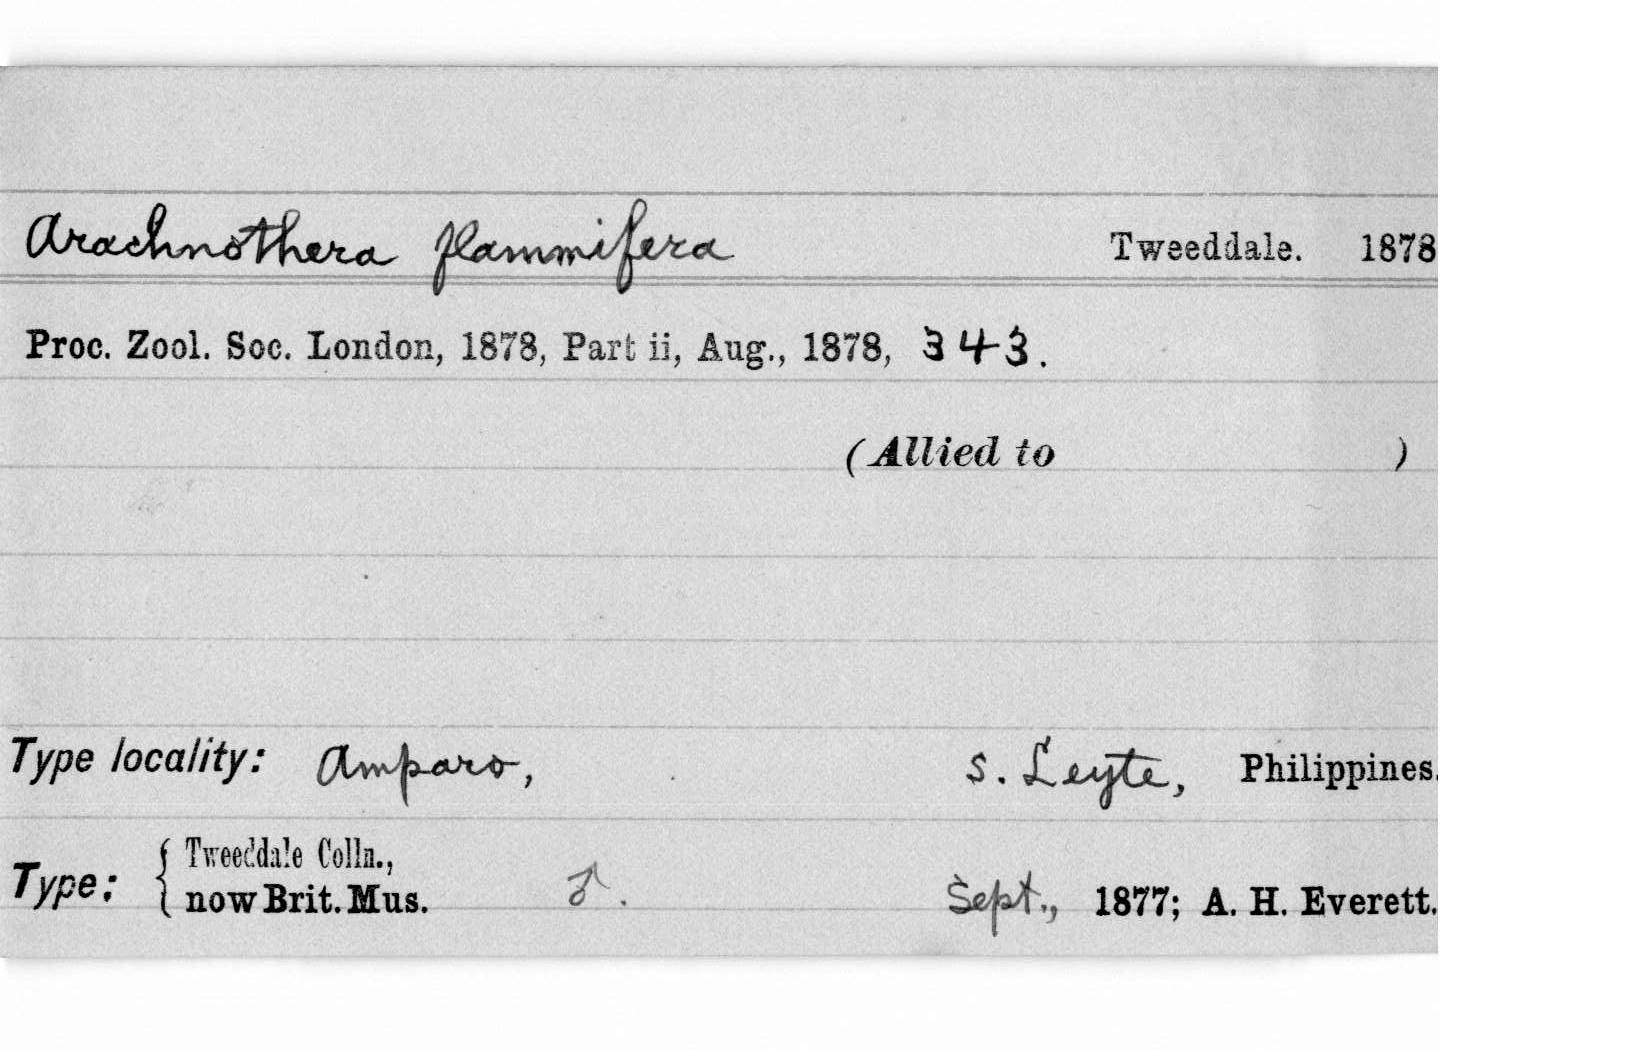 Arachnothera flammifera Tweeddale. 1878
Proc. Zool. Soc. London, 1878, Part ii, Aug., 1878, 343.
(Allied to )
Type locality: Amparo, S. Leyte, Philippines.
Type: { Tweeddale Colln.,
now Brit. Mus. ♂. Sept., 1877; A. H. Everett.